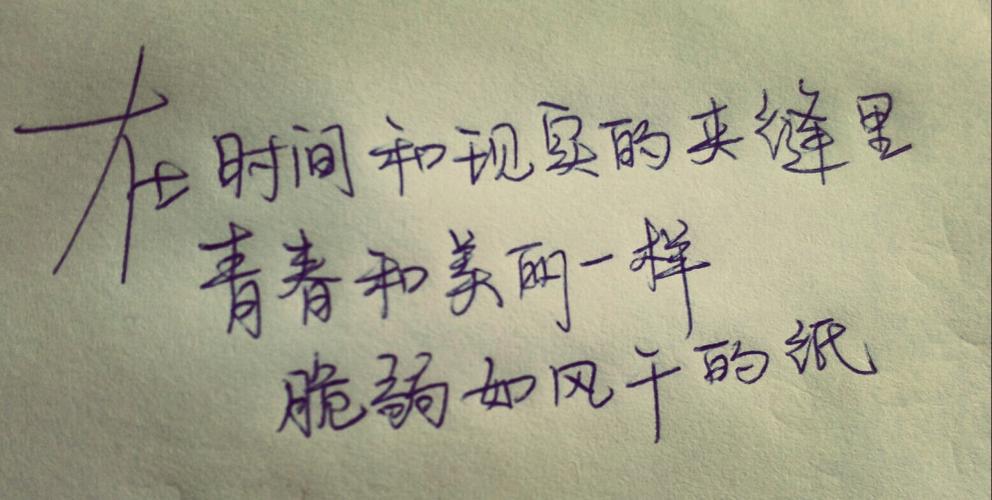 在时间和现实的夹缝里
青春和美丽一样
脆弱如风干的纸